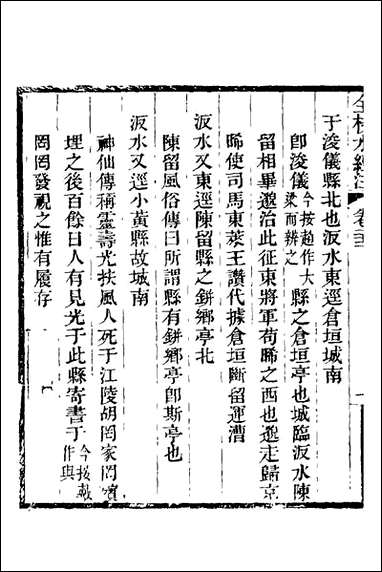 全校水經注 卷二十三
于浚儀縣北也汳水東逕倉垣城南
卽浚儀今按趙作大梁而辨之縣之倉垣亭也城臨汳水陳
留相畢邈治此征東將軍苟晞之西也邈走歸京
晞使司馬東萊王讚代據倉垣斷留運漕
汳水又東逕陳留縣之鉼鄉亭北
陳留風俗傳曰所謂縣有鉼鄉亭卽斯亭也
汳水又逕小黃縣故城南
神仙傳稱靈壽光扶風人死于江陵胡罔家罔殯
埋之後百餘日人有見光于此縣寄書于今按戴作與
罔罔發視之惟有履存